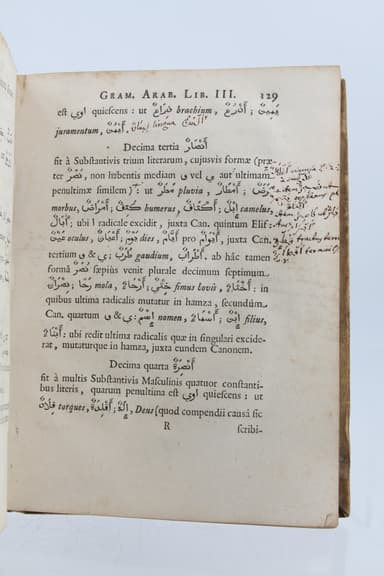 GRAM. ARAB. LIB. III. 129
est اوي quiescens: ut ذِرَاعٌ brachium, أَذْرُعٌ; يَمِينٌ
juramentum, أَيْمُنٌ.
Decima tertia أَنْصَارٌ
fit à Substantivis trium literarum, cujusvis formæ (præ-
ter نُصَرٌ, non habentis mediam و vel ي aut ultimam
penultimæ similem): ut مَطَرٌ pluvia, أَمْطَارٌ; مَرَضٌ
morbus, أَمْرَاضٌ; كَتِفٌ humerus, أَكْتَافٌ; إِبِلٌ camelus,
آبَالٌ: ubi ا radicale excidit, juxta Can. quintum Elif:
عَيْنٌ oculus, أَعْيَانٌ; يَوْمٌ dies, أَيَّامٌ pro أَيْوَامٌ, juxta Can.
tertium و & ي: طَرَبٌ gaudium, أَطْرَابٌ. ab hâc tamen
formâ نَصَرٌ sæpius venit plurale decimum septimum
نِصْرَانٌ: رَحًا mola, أَرْحَاءٌ; خِثْيٌ fimus bovis, أَخْثَاءٌ: in
quibus ultima radicalis mutatur in hamza, secundùm
Can. quartum و & ي: إِسْمٌ nomen, أَسْمَاءٌ; إِبْنٌ filius,
أَبْنَاءٌ: ubi redit ultima radicalis quæ in singulari excide-
rat, mutaturque in hamza, juxta eundem Canonem.
Decima quarta أَنْصِرَةٌ
fit à multis Substantivis Masculinis quatuor constanti-
bus literis, quarum penultima est اوي quiescens: ut
قِلَادٌ torques, أَقْلِدَةٌ; إِلَهٌ, Deus [quod compendii causâ sic
R scribi-